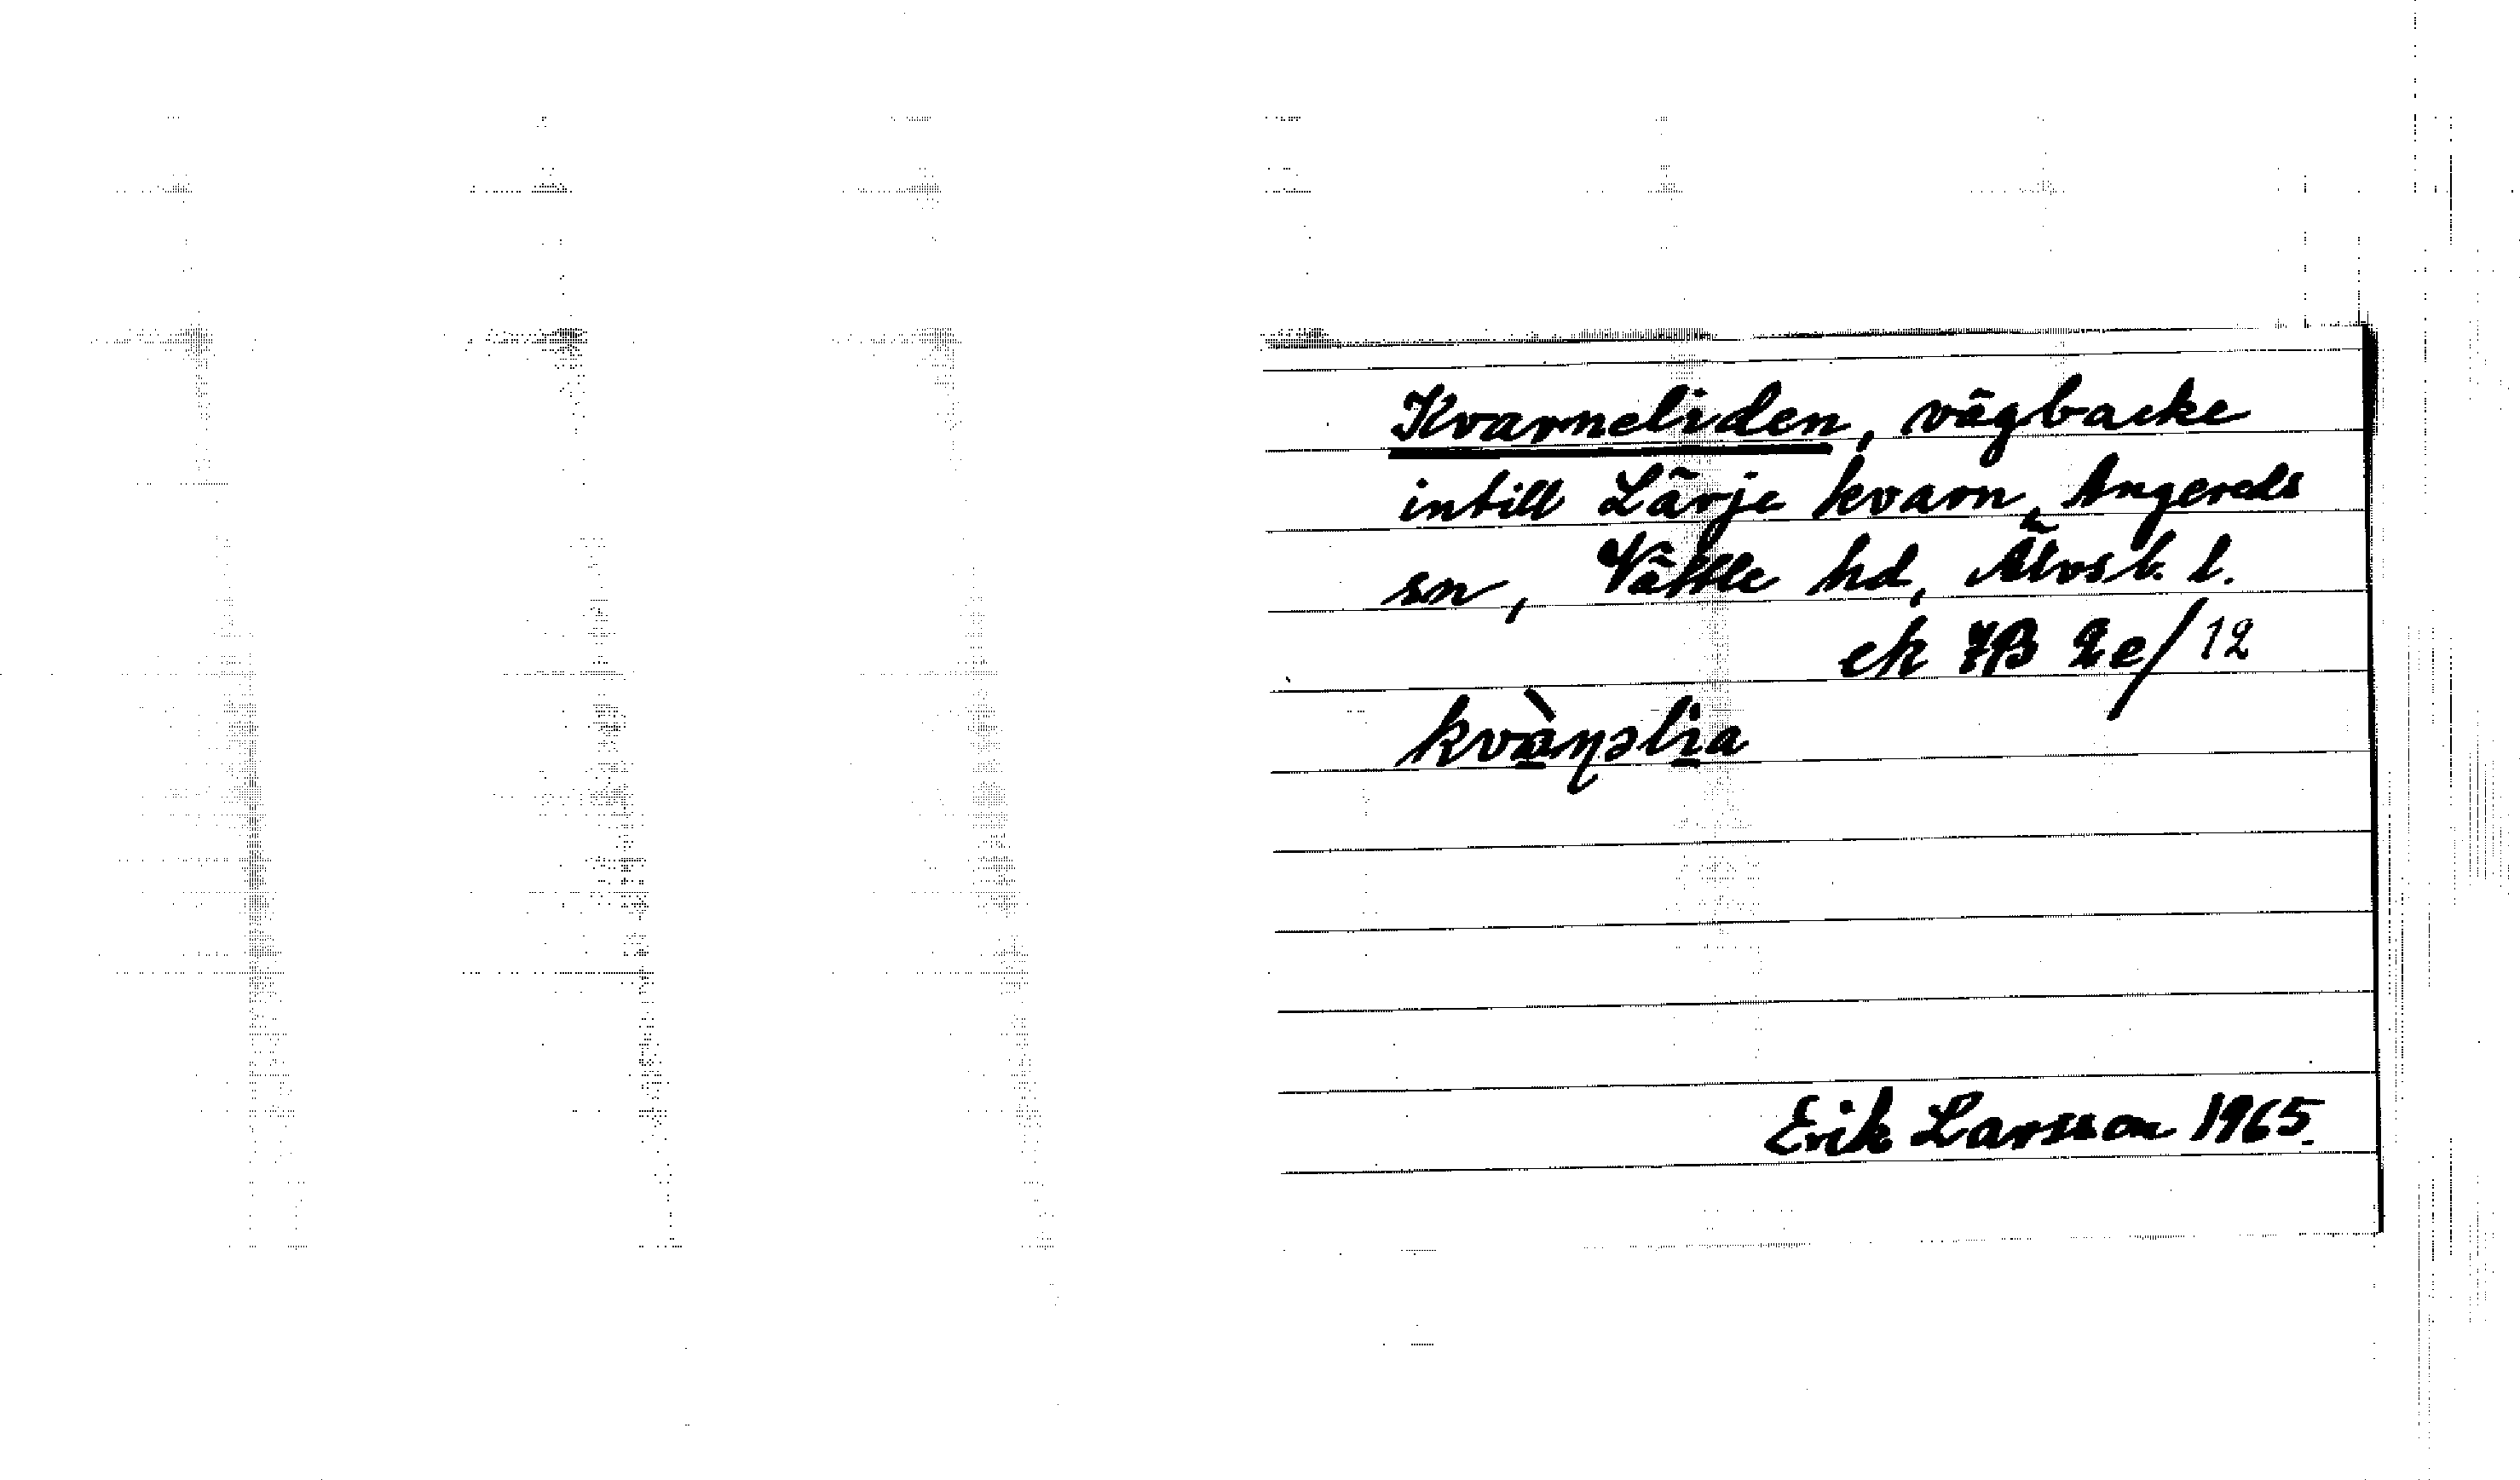 Kvarneliden, vägbacke
intill Lärje kvarn, Angereds
sn, Vättle hd, Älvsb. l.
ek 7B 2e/12
kvàɳəlia
Erik Larsson 1965.